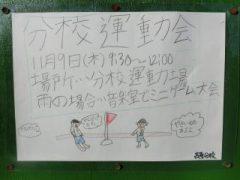 分校運動会
11月9日(木)9:30～12:00
場所い分校運動場
雨の場合い音楽室でミニゲーム大会